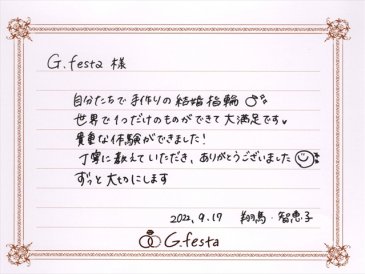 G.festa 様
自分たちで手作りの結婚指輪
世界で1つだけのものができて大満足です
貴重な体験ができました!
丁寧に教えていただき、ありがとうございました
ずっと大切にします
2022.9.17 翔馬・智恵子
G.festa